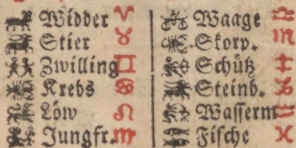 Widder ♈
Stier ♉
Zwilling ♊
Krebs ♋
Löw ♌
Jungfr. ♍
Waage ♎
Skorp. ♏
Schütz ♐
Steinb. ♑
Wasserm ♒
Fische ♓